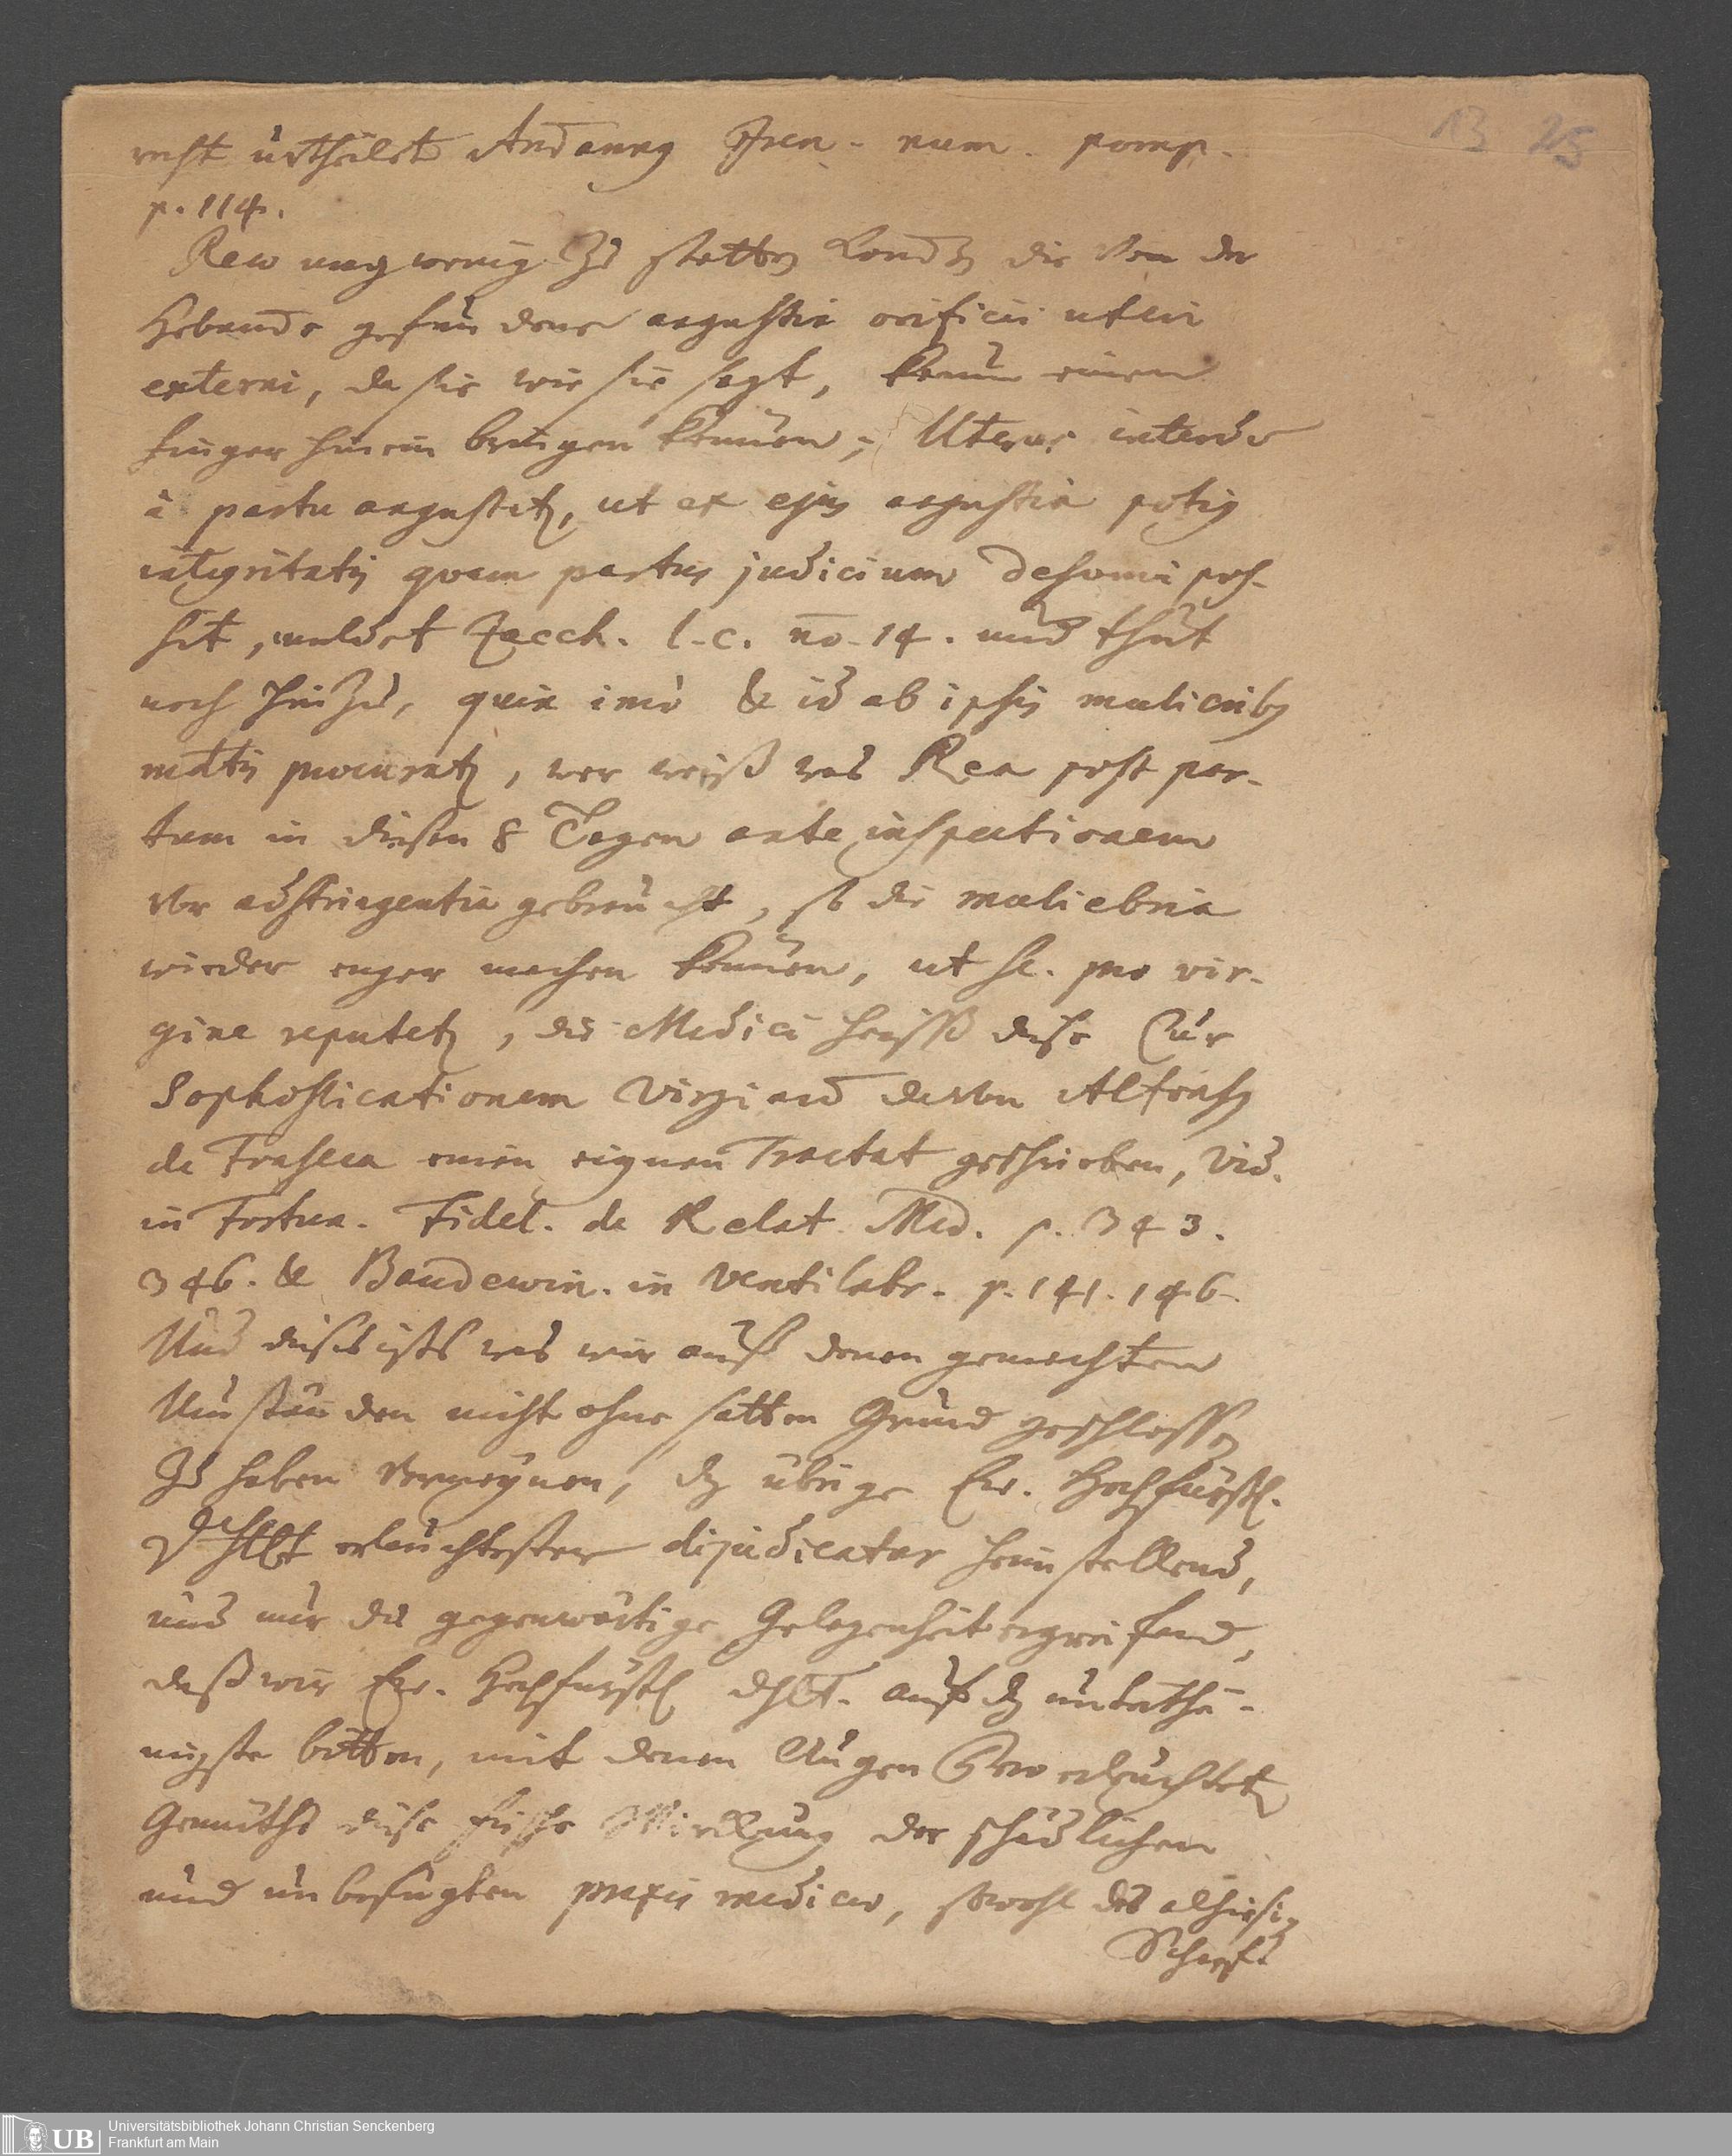 13 25
recht urtheilet Andanng Iren. num. pomp.
p. 114.
Reæ mag wenig zu statten kom̄en die von der
Hebamme gefundene angustia orificii uteri
externi, da sie wie sie sagt, kaum einen
finger hinein bringen können; Uterus interdū
à partu angustatꝫ, ut ex ejus angustia potiꝰ
integritatis quam partus judicium desumi pos-
sit, meldet Zacch. l. c. no. 14. und thut
noch hinzu, quin imò & id ab ipsis mulieribꝰ
multis procuratꝫ, wer weiß was Rea post par-
tum in diesen 8 Tagen ante inspectionem
vor adstringentia gebraucht, so die muliebria
wieder enger machen können, ut sc. pro vir-
gine reputetꝫ, die Medici heissẽ diese Cur
Sophosticationem Virginū davon Alfonsꝰ
de Fonseca einen eignen Tractat geschrieben, vid.
in Fortun. Fidel. de Relat. Med. p. 343.
346. & Baudewin. in Ventilabr. p. 141. 146.
Und dieses ists was wir auß denen gemachten
Umständen nicht ohne satten Grund geschlossẽ
zu haben vermeynen, dz übrige Ew. Hochfürstl.
Dhlt erleuchtester dijudicatur heimstellend,
und nur die gegenwärtige Gelegenheit ergreifend,
daß wir Ew. Hochfürstl Dhlt. auf dz unterthä-
nigste bitten, mit denen Augen Dero erleuchtetẽ
Gemüths diese frische Wirckung der schädlichen
und unbefugten praxis medicæ, sowohl des alhiesigẽ
Scharf-
Universitätsbibliothek Johann Christian Senckenberg
Frankfurt am Main
UB